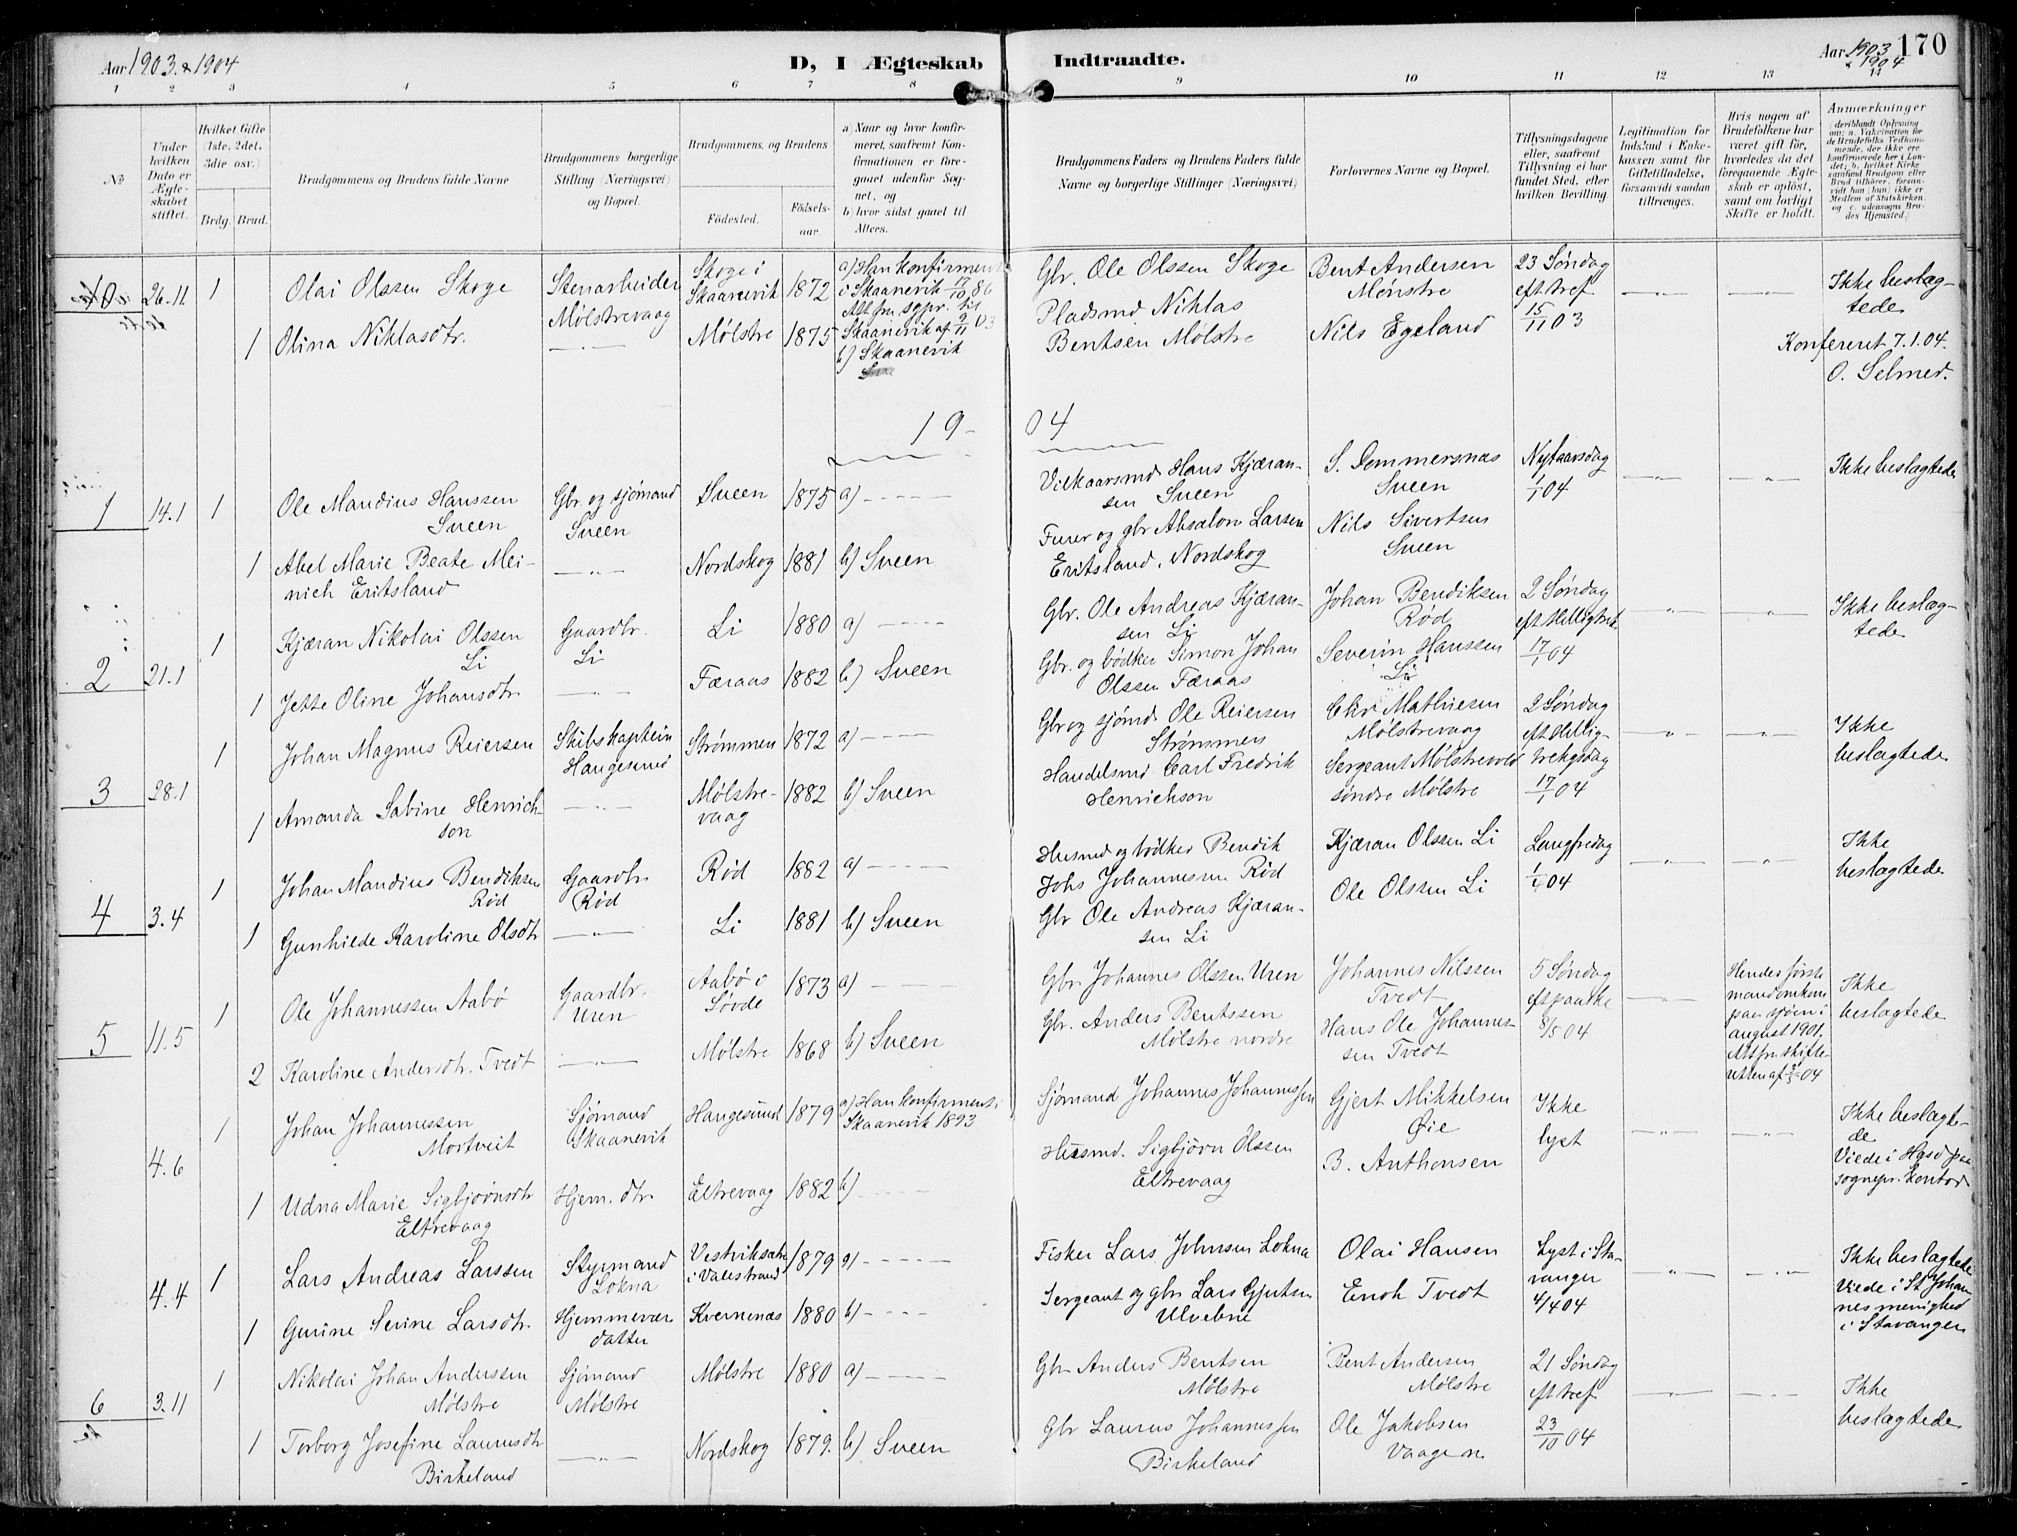 Aar 1903 & 1904
D, I Ægteskab Indtraadte.
Aar 1903 & 1904
170
1 2 3 4 5 6 7 8 9 10 11 12 13 14
№
Under hvilken Dato er Ægteskabet stiftet.
Hvilket Gifte (1ste, 2det, 3die osv.)
Brdg. Brud.
Brudgommens og Brudens fulde Navne
Brudgommens borgerlige Stilling (Næringsvei) og Bopæl.
Brudgommens og Brudens
Fødested.
Fødselsaar.
a) Naar og hvor konfirmeret, saafremt Konfirmationen er foregaaet udenfor Sognet, og
b) hvor sidst gaaet til Alters.
Brudgommens Faders og Brudens Faders fulde Navne og borgerlige Stillinger (Næringsvei)
Forlovernes Navne og Bopæl.
Tillysningsdagene eller, saafremt Tillysning ei har fundet Sted, efter hvilken Bevilling.
Legitimation for Indskud i Enkekassen samt for Giftetilladelse, forsaavidt saadan tiltrænges.
Hvis nogen af Brudefolkene har været gift før, hvorledes da det foregaaende Ægteskab er opløst, samt om lovligt Skifte er holdt.
Anmærkninger
(deriblandt Oplysning om: a. Vakcination for de Brudefolks Vedkommende, der ikke ere konfirmerede her i Landet; b. hvilket Kirkesamfund Brudgom eller Brud tilhører, forsaavidt han (hun) ikke er Medlem af Statskirken, og c. udensogns Brudes Hjemsted.)
26.11 1 Olai Olssen Skoge Stenarbeider Mølstrevaag Skoge i Skaanevik 1872 a) Han konfirmert i Skaanevik 17/10 86
Att fra sgpr. til Skaanevik af 9/11 03
b) Skaanevik
Gbr. Ole Olssen Skoge Bent Andersen Mønstre 23 Søndag eft tref 15/11 03 Ikke beslagtede
1 Olina Niklasdtr. Mølstre 1875 Pladsmd Niklas Bentsen Mølstre Nils Egeland
Konfereret 7.1.04.
O. Selmer.
19-04
1 14.1 1 Ole Mandius Hanssen Sveen Gbr. og sjømand Sveen Sveen 1875 a) Vilkaarsmd Hans Kjæransen Sveen S. Sommersnæs Sveen Nytaarsdag 1/1 04 Ikke beslagtede
1 Abel Marie Beate Meinich Eritsland Nordskog 1881 b) Sveen Furer og gbr Absalon Larsen Eritsland, Nordskog Nils Sivertsen Sveen
2 21.1 1 Kjæran Nikolai Olssen Li Gaardbr. Li Li 1880 a) Gbr. Ole Andreas Kjæransen Li Johan Bendiksen Rød 2 Søndag eft Helligtrek 17/1 04 Ikke beslagtede
1 Jette Oline Johansdtr Færaas 1882 b) Sveen Gbr. og bødker Simon Johan Olssen Færaas Severin Hanssen Li
3 28.1 1 Johan Magnus Reiersen Skibskaptein Haugesund Strømmen 1872 a) Gbr og sjømd Ole Reiersen Strømmen Chr Mathiesen Mølstrevaag 2 Søndag eft Helligtrekgsdag 17/1 04 Ikke beslagtede
1 Amanda Sabine Henrichson Mølstrevaag 1882 b) Sveen Handelsmd Carl Fredrik Henrichson Sergeant Mølstrevold søndre Mølstre
4 3.4 1 Johan Mandius Bendiksen Rød Gaardbr. Rød Rød 1882 a) Husmd og bødker Bendik Johs Johannessen Rød Kjæran Olssen Li Langfredag 1/4 04 Ikke beslagtede
1 Gunhilde Karoline Olsdtr Li 1881 b) Sveen Gbr Ole Andreas Kjæransen Li Ole Olssen Li
5 11.5 1 Ole Johannessen Aabø Gaardbr. Uren Aabø i Søvde 1873 a) Gbr Johannes Olssen Uren Johannes Nilssen Tvedt 5 Søndag eft paaske 8/5 04 Hendes første mand omkom paa sjøen i august 1901. Att fra skifteretten af 04 Ikke beslagtede
2 Karoline Andersdtr. Tvedt Mølstre 1868 b) Sveen Gbr. Anders Bentssen Mølstre nordre Hans Ole Johannessen Tvedt
4.6 1 Johan Johannessen Mortveit Sjømand Skaanevik Haugesund 1879 a) Han konfirmert i Skaanevik 1893 Sjømand Johannes Johannessen Gjert Mikkelsen Øie Ikke lyst Ikke beslagtede
Viede i Hgsd paa sognepr. kontor
1 Udna Marie Sigbjørnsdtr Eltrevaag Hjem. dtr. Eltrevaag 1882 b) Husmd. Sigbjørn Olssen Eltrevaag B. Anthonsen
4.4 1 Lars Andreas Larssen Styrmand Lokna Vestvik i Valestrand 1879 a) Fisker Lars Johnsen Lokna Olai Hansen Lyst i Stavanger 4/4 04 Ikke beslagtede
Viede i St Johannes menighed i Stavanger
1 Gurine Serine Larsdtr. Hjemmevær datter Kvernenæs 1880 b) Sergeant og gbr Lars Gjertsen Ulveben Enok Tvedt
6 3.11 1 Nikolai Johan Anderssen Mølstre Sjømand Mølstre Mølstre 1880 a) Gbr Anders Bentsen Mølstre Bent Andersen Mølstre 21 Søndag eft tref 23/10 04 Ikke beslagtede
1 Torborg Josefine Laurusdtr Birkeland Nordskog 1879. b) Sveen Gbr Laurus Johannessen Birkeland Ole Jakobsen Vaage n.